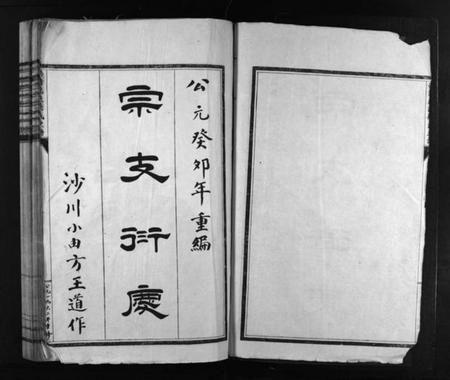 公元癸卯年重編
宗支衍慶
沙川小由方王道作